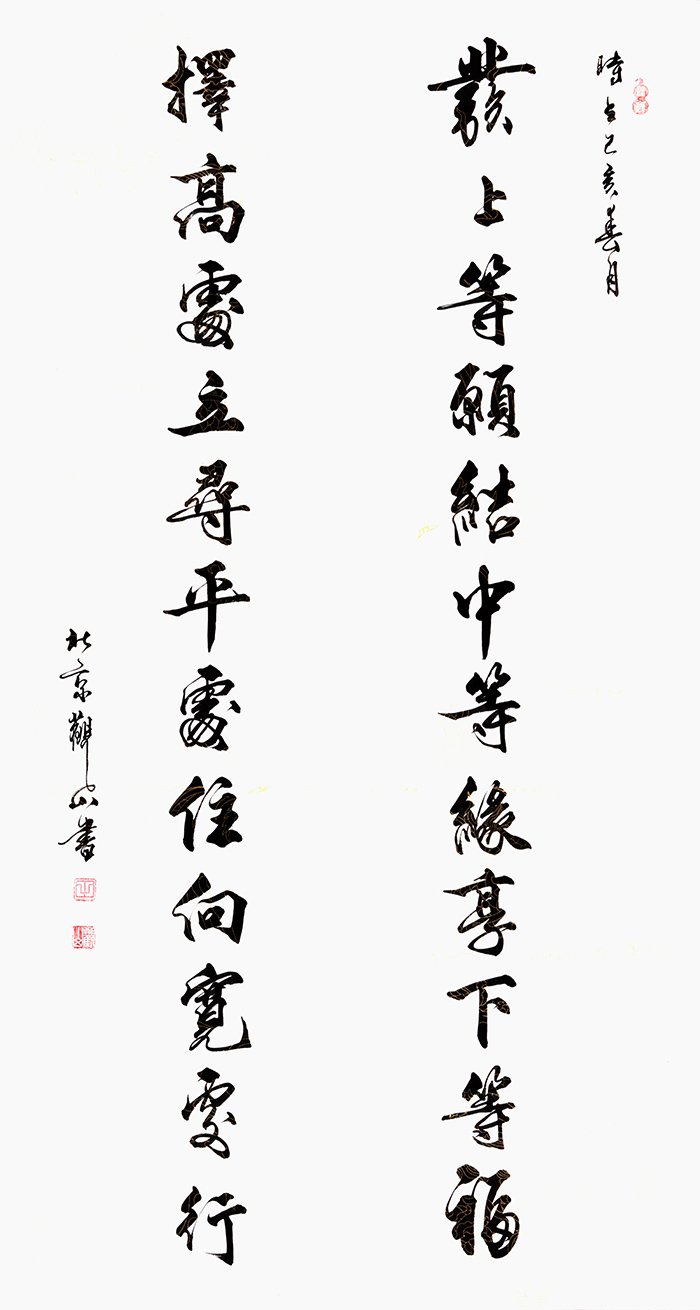 時在己亥春月
發上等願結中等緣享下等福
擇高處立尋平處住向寬處行
北京觀山書